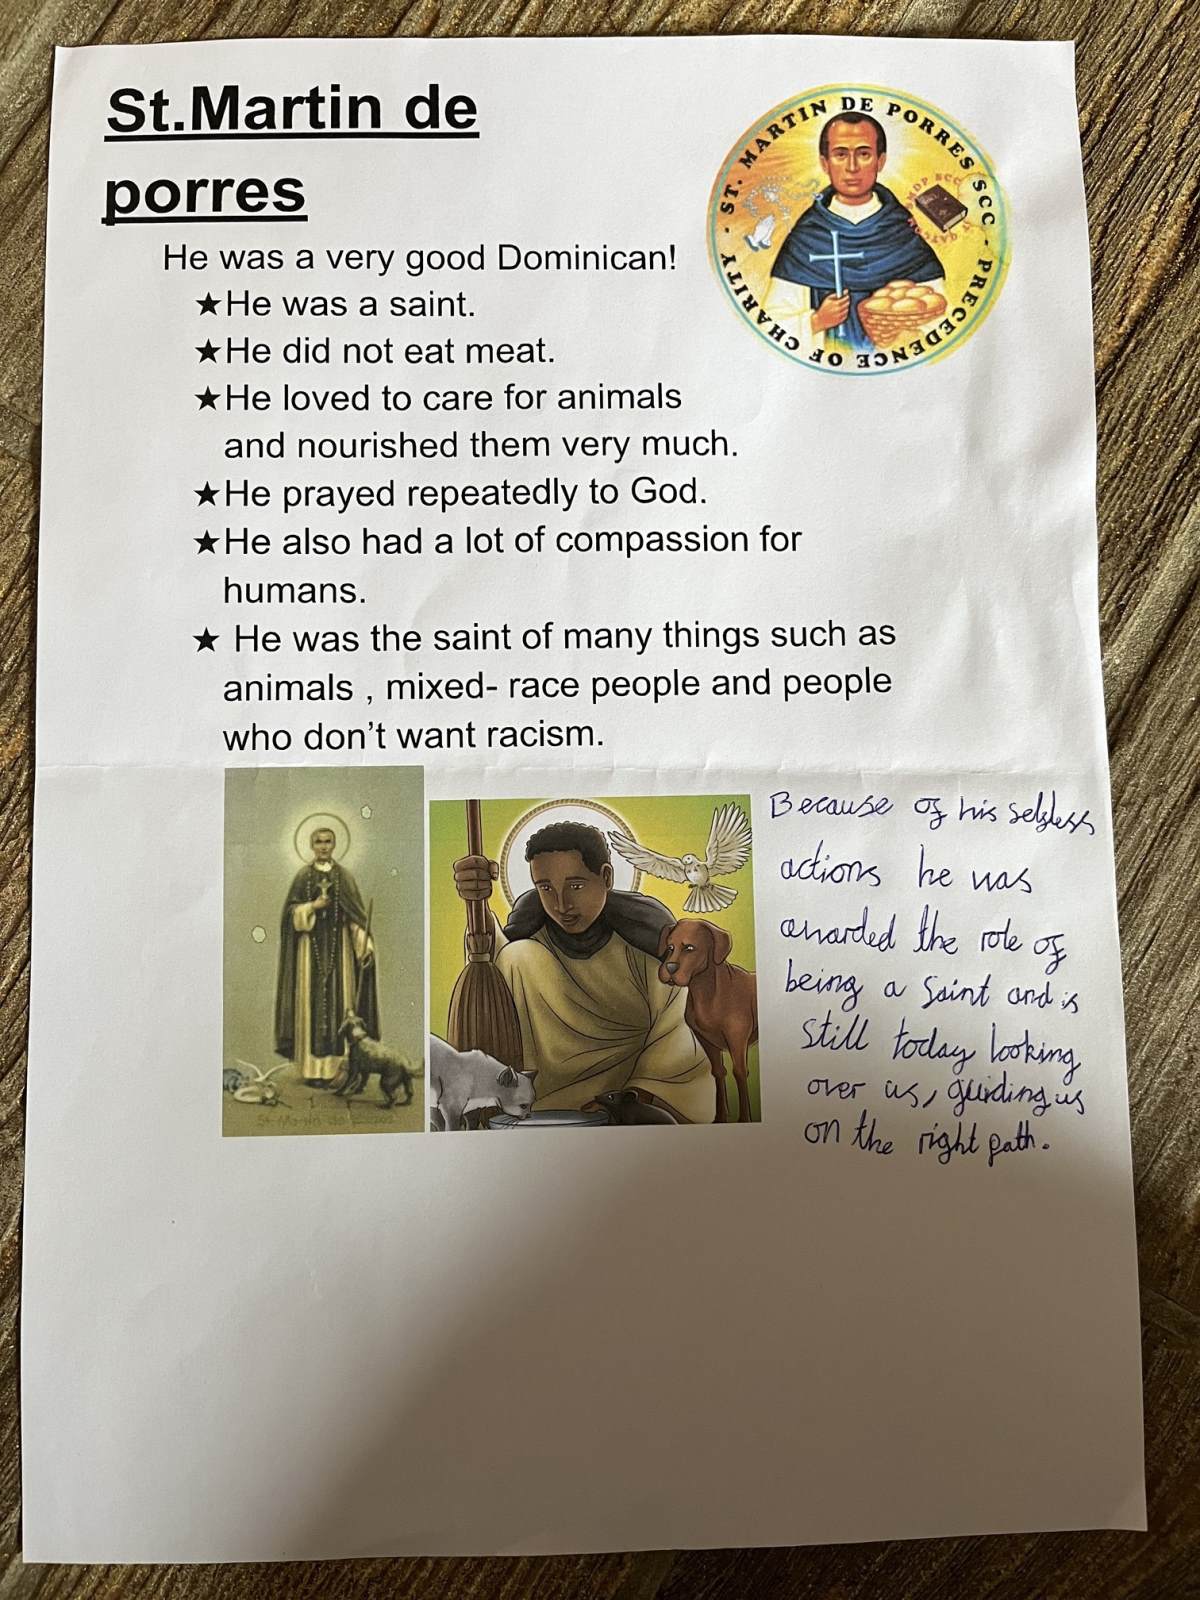 St.Martin de
porres
ST. MARTIN DE PORRES SCC - PRECEDENCE OF CHARITY -
He was a very good Dominican!
★He was a saint.
★He did not eat meat.
★He loved to care for animals
and nourished them very much.
★He prayed repeatedly to God.
★He also had a lot of compassion for
humans.
★ He was the saint of many things such as
animals , mixed- race people and people
who don't want racism.
Because of his selfless
actions he was
awarded the role of
being a saint and is
still today looking
over us, guiding us
on the right path.